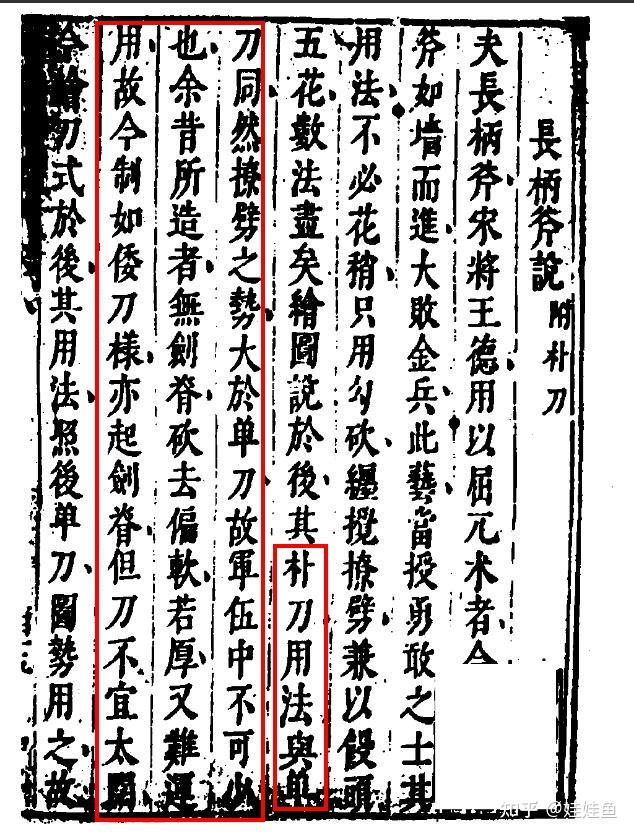 長柄斧說 附朴刀
夫長柄斧宋將王德用以屈兀术者
斧如墙而進大敗金兵此藝當授勇敢之士其
用法不必花稍只用勾砍纏攪撩劈兼以饅頭
五花數法盡矣繪圖說於後其朴刀用法與单
刀同然撩劈之勢大於单刀故軍伍中不可少
也余昔所造者無劍脊砍去偏軟若厚又難運
用故今制如倭刀樣亦起劍脊但刀不宜太闊
今繪刀式於後其用法照後单刀圖勢用之故
知乎 @娃娃鱼